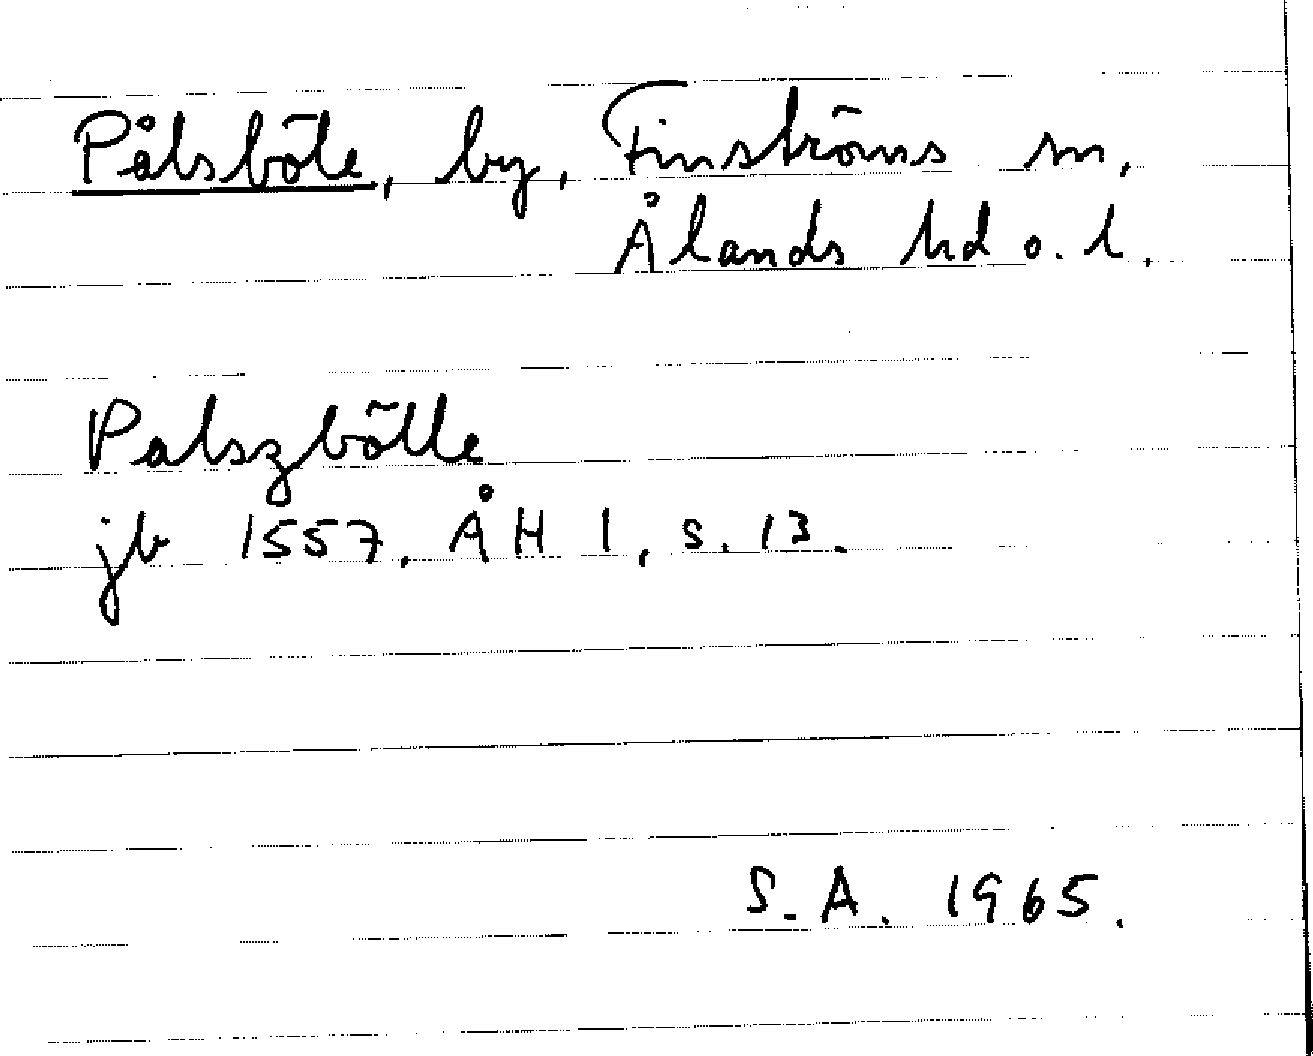 Pålsböle, by, Finströms sn,
Ålands hd o. l.
Palszbölle
jb 1557, ÅH 1, s. 13.
S.A. 1965.